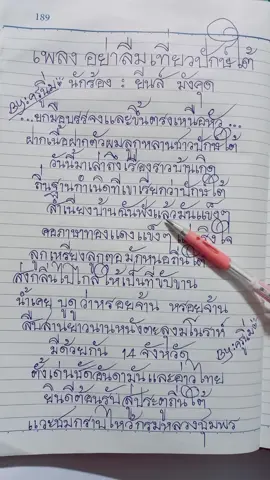 189
เพลง อย่าลืมเที่ยวปักษ์ใต้
นักร้อง : ยีนส์ มังคุด
By:ครูปิ่ม
...ยกมือบรรจงและขึ้นตรงเหนือหัว...
ฝากเนื้อฝากตัวผมลูกหลานชาวปักษ์ใต้
วันนี้มาเล่าถึงเรื่องราวบ้านเกิด
ถิ่นฐานกำเนิดที่เขาเรียกว่าปักษ์ใต้
สำเนียงบ้านฉันฟังแล้วมันแข็งๆ
คือภาษาทองแดงแข็งๆ จริงใจ
ลูกเหรียงลูกตอมักหนอถิ่นใต้
ส่งกลิ่นไปไกลให้เป็นที่ขับขาน
น้ำเคย บูดู ว่าหรอยจ้าน หรอยจ้าน
สืบสานยาวนานหนังตะลุงมโนราห์
มีด้วยกัน 14 จังหวัด
By:ครูปิ่ม
ตั้งเด่นชัดอันดามันและอ่าวไทย
ยินดีต้อนรับสู่ประตูถิ่นใต้
แวะชมกราบไหว้กรมหลวงชุมพร